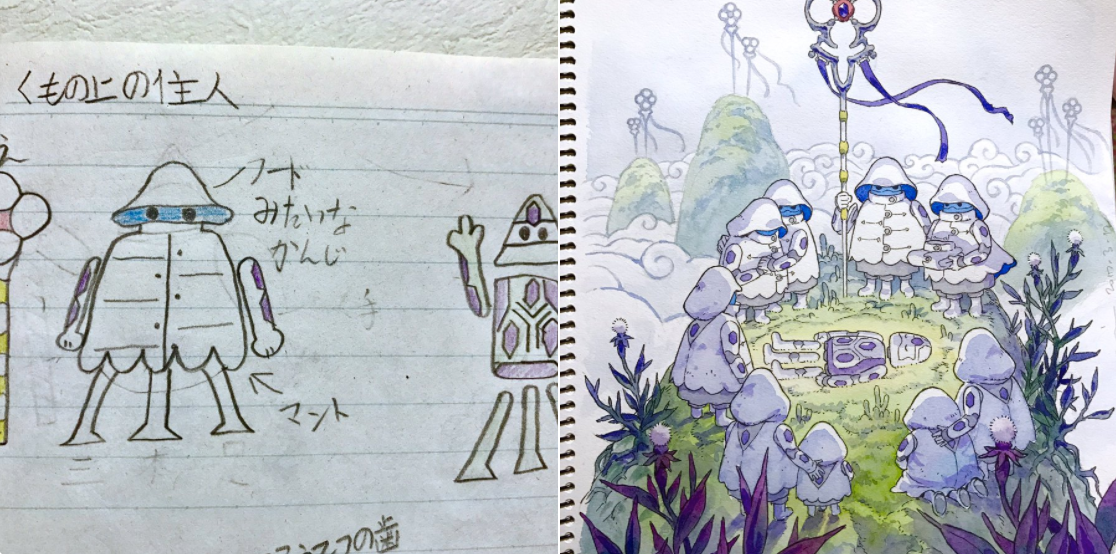 くもの上の住人
フード
みたいな
かんじ
マント
の歯